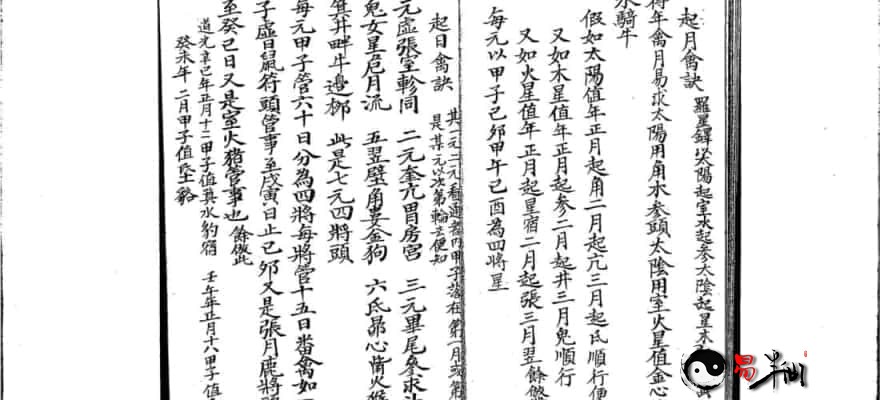 起月禽訣
得年禽月易求太陽用角木參頭太陰用室火星值金心
水騎牛
假如太陽值年正月起角二月起亢三月起氐順行便
又如木星值年正月起參二月起井三月鬼順行
又如火星值年正月起星宿二月起張三月翌餘倣
每元以甲子己卯甲午己酉為四將星
起日禽訣
其一元二元看通書内甲子落在第一月或第
是某元以次第輪去便知
元虛張室軫同 二元奎亢胃房宮 三元畢尾參求
鬼女星危月流 五翌壁角婁金狗 六氐昴心觜火猴
箕井畔牛邊柳 此是七元四將頭
每元甲子管六十日分為四將每將管十五日番禽如
子虛日鼠符頭管事至戊寅日止己卯又是張月鹿將
至癸巳日又是室火猪管事也餘倣此
道光辛巳年正月十二甲子值箕水豹宿 壬午年正月十八甲子值
癸未年二月甲子值氐土貉
易半仙